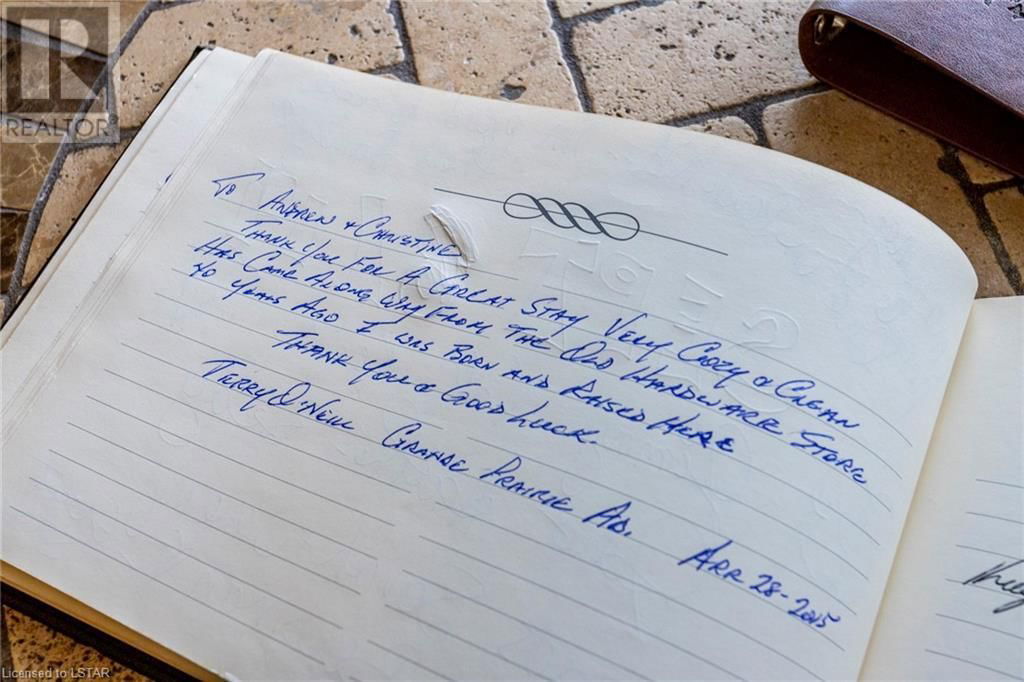 REALTOR
TO ANDREW & CHRISTINE
THANK YOU FOR A GREAT STAY VERY COOZY & CLEAN
HAS CAME ALONG WAY FROM THE OLD HARDWARE STORE
40 YEARS AGO I WAS BORN AND RAISED HERE
THANK YOU & GOOD LUCK.
TERRY O'NEILL GRANDE PRAIRIE AB. APR 28-2015
Licensed to LSTAR